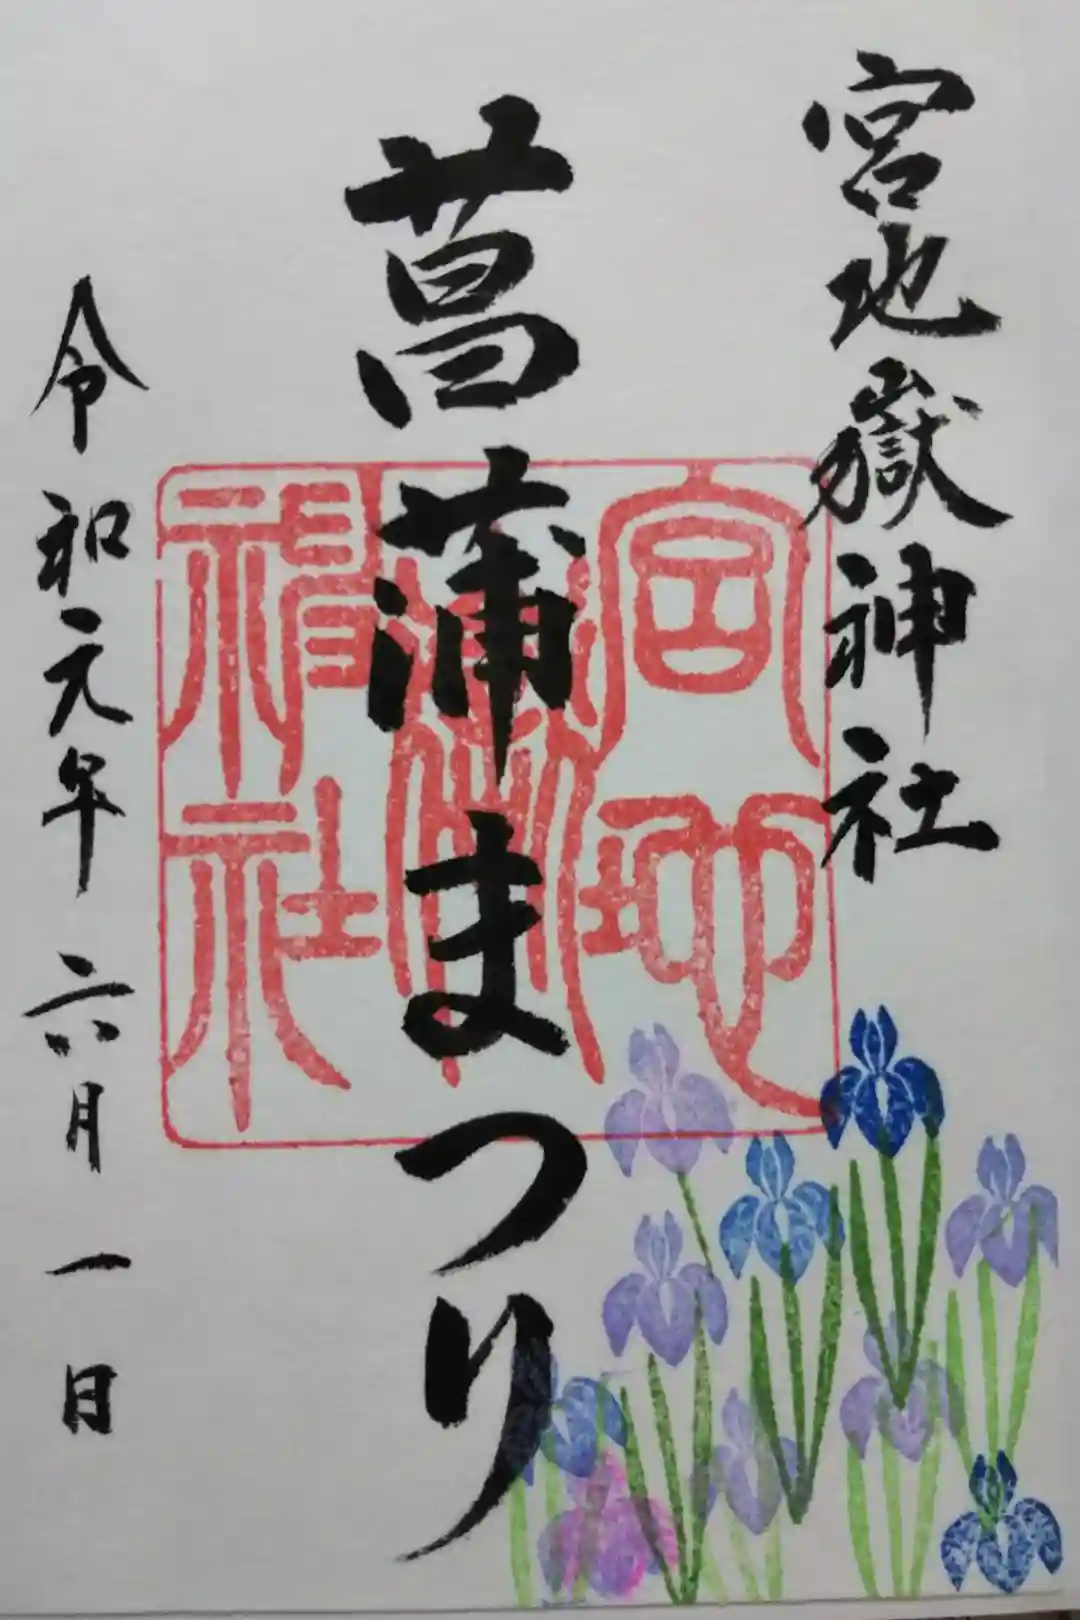 宮地嶽神社
菖蒲まつり
令和元年 六月 一日
宮地嶽神社